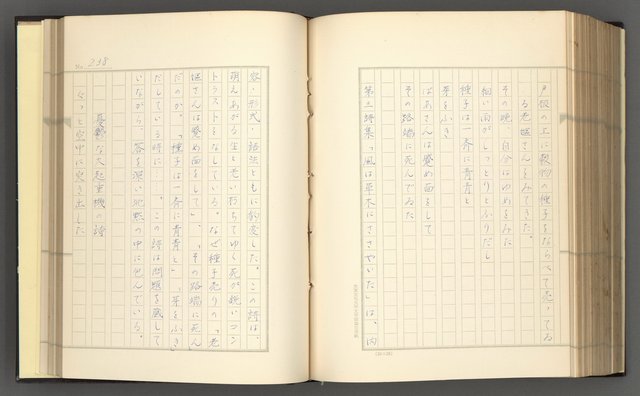 戸板の上に穀物の種子をならべて売ってゐ
る老婆さんをみてきた。
その晩、自分はゆめをみた
細い雨がしっとりとふりだし
種子は一斉に青青と
芽をふき
ばあさんは蹙め面をして
その路端に死んでゐた
第三詩集「風は草木にささやいた」は、内
No. 238
容・形式・語法ともに豹変した。この詩は、
萌えあがる生と老い朽ちてゆく死が鋭いコン
トラストをなしている。なぜ種子売りの「老
婆さんは蹙め面をして」、「その路端に死ん」
だのか。「種子は一斉に青青と」「芽をふき」
だしている時に…。この詩は問題を蔵して
いながら、答を深い沈黙の中に包んでいる。
憂鬱な大起重機の詩
ぐっと空中に突き出した
(20×20)